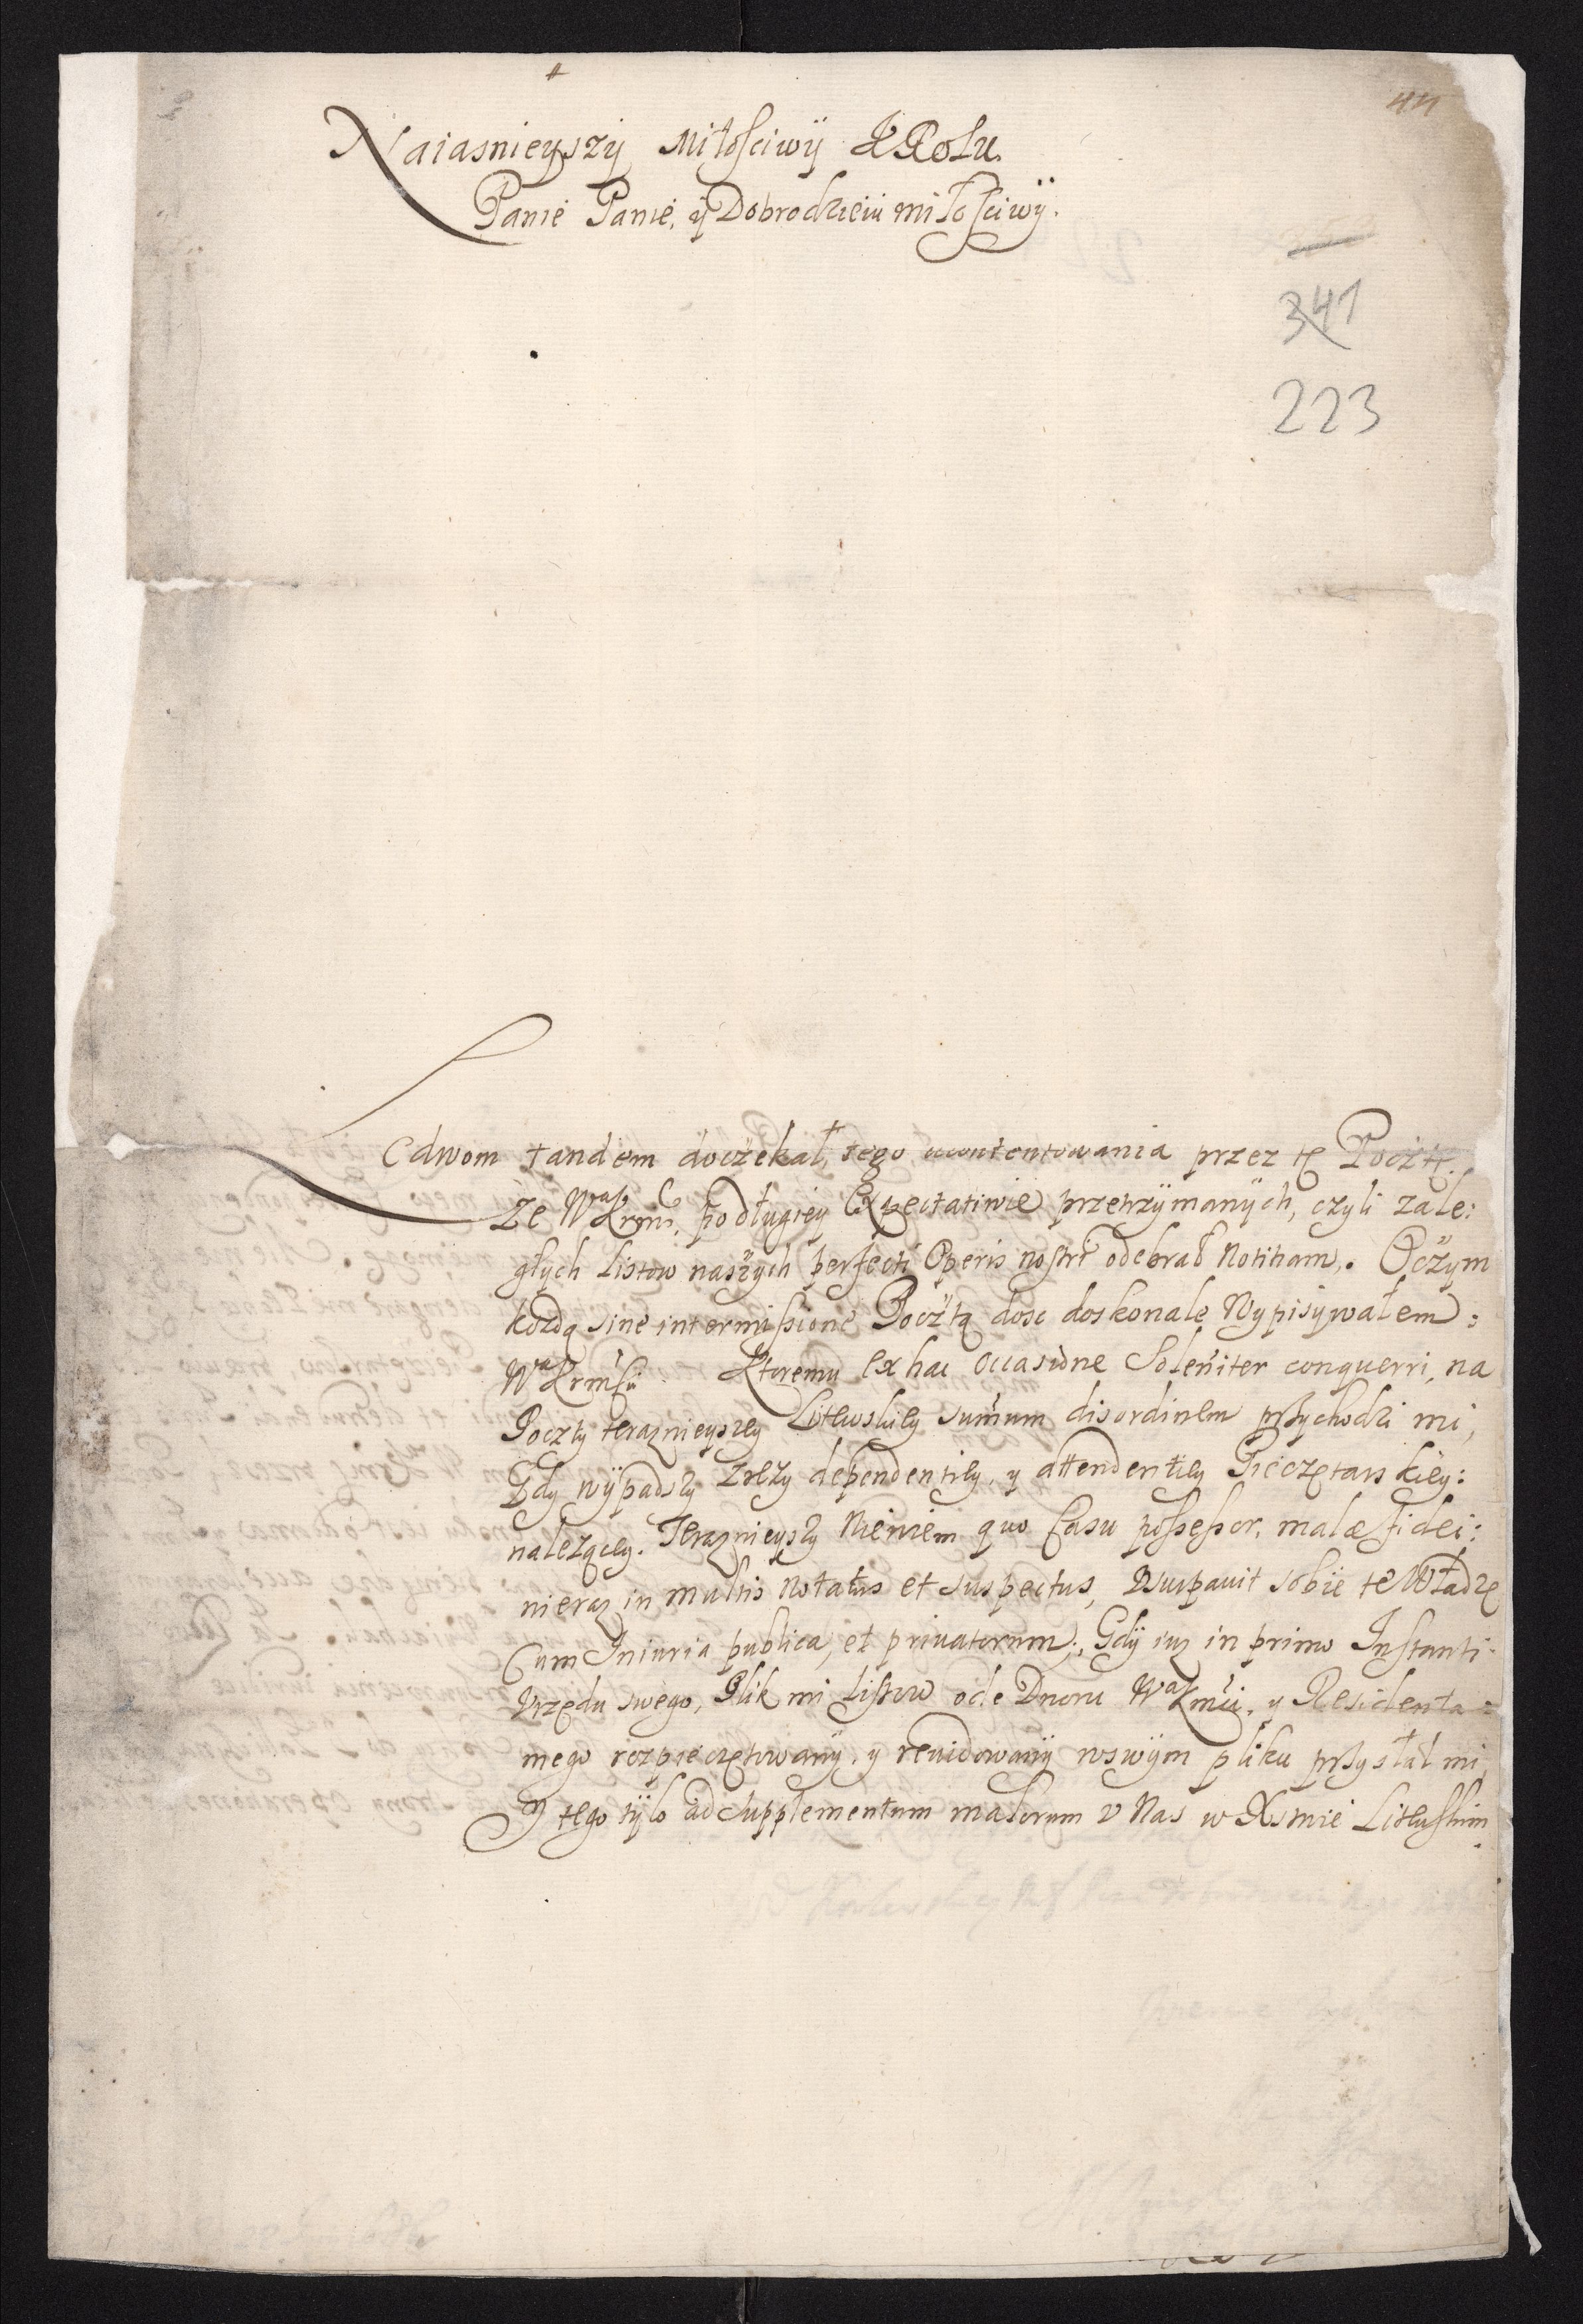 44
Naiasnieyszÿ Miłosciwÿ KRolu
Panie Panie, ÿ Dobrodzieiu miłosciwÿ.
341
223
Ledwom tandem doczekał, tego ucontentowania przez tę Pocztę.
Ze WaKrms, po długiey Expectatiwie przetrzÿmanÿch, czyli zale:
głych Listow naszych perfecti Operis nostri odebrał Notitiam. Oczym
kozdą sine intermissione Pocztą dosc doskonale Wypisywałem:
WaKrmsci. Ktoremu ex hac occasione Soleniter conquerri, na
Poczty terazniejszey Litewskiey summum disordinem przychodzi mi,
Gdy wÿpadszy zrezy dependentiey, y attendentiey Pieczętarskiey:
nalezącey. Teraznieyszy Niewiem quo Casu possessor, malæ fidei:
nieraz in multis Notatus et suspectus, Usurpavit sobie te Władzę
Cum Iniuria publica, et privatorum, Gdÿ iuz in primo Instanti
Vrzędu swego, Plik mi Listow ode Dworu WaKmsci, y Residenta
mego rozpieczętowanÿ, y revidowanÿ wswÿm pliku przysłał mi,
Y tego tÿlo ad Supplementum malorum v Nas w Xstwie Litewskim